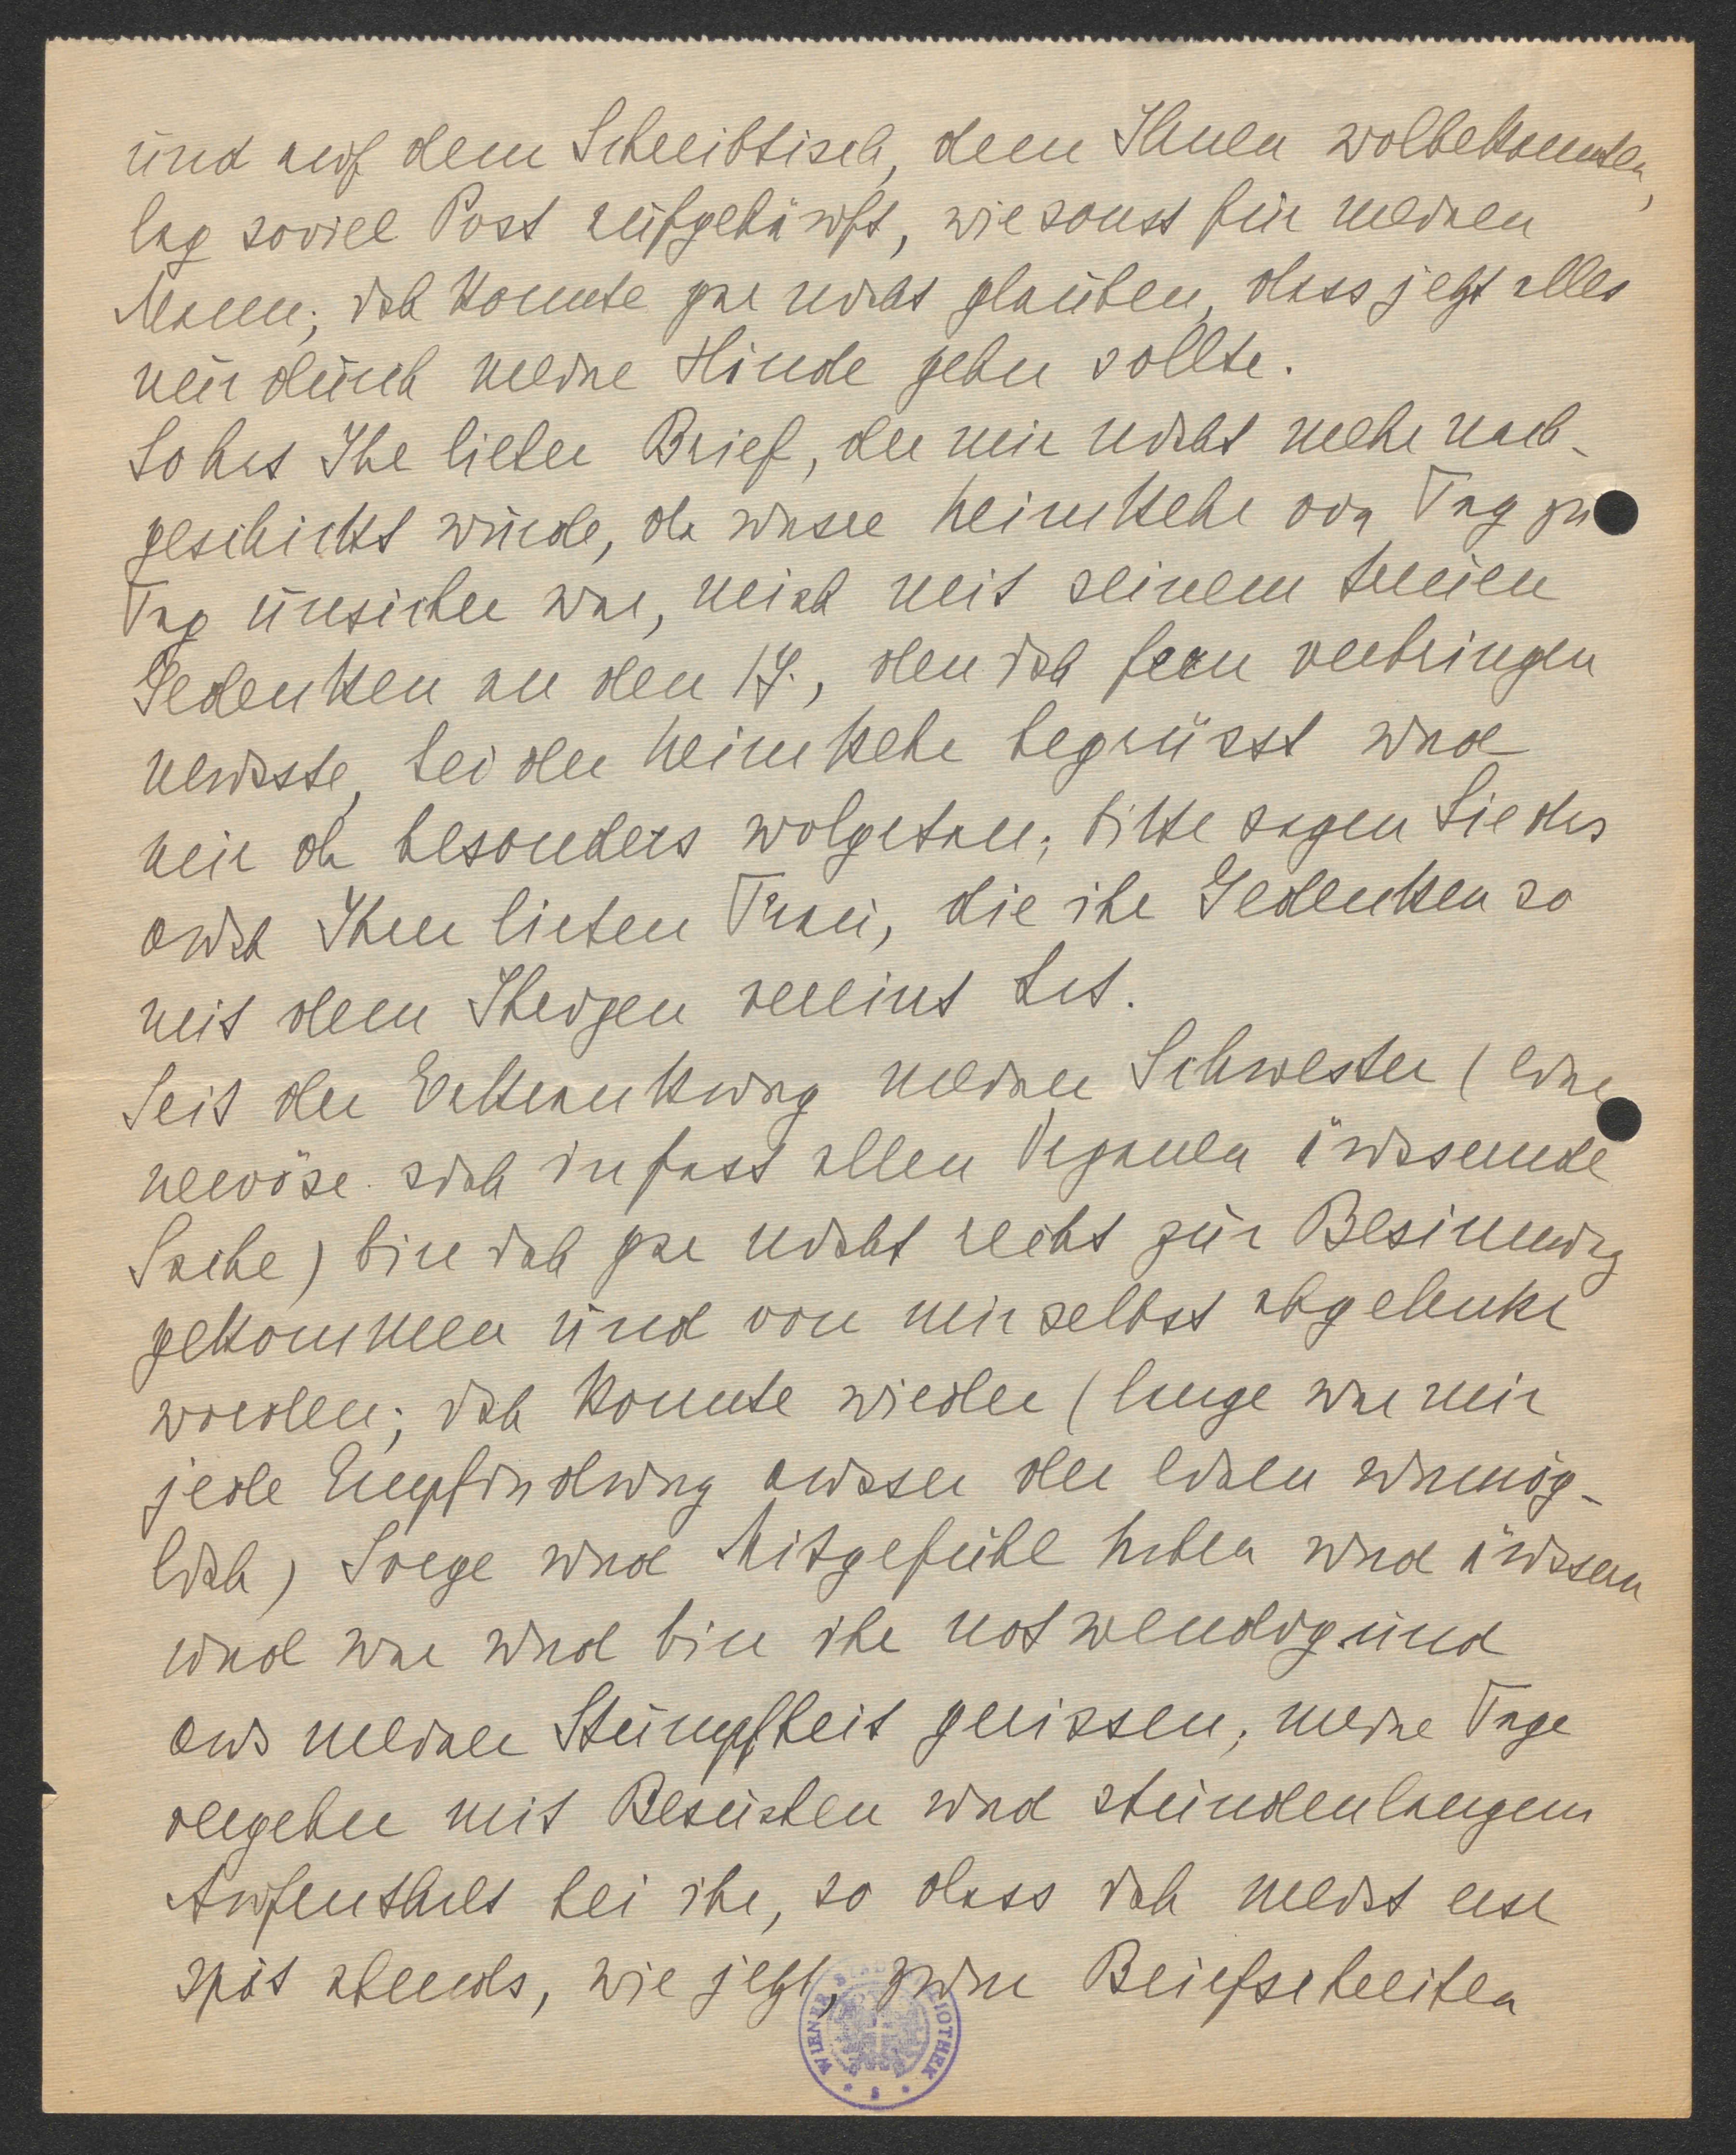 und auf dem Schreibtisch, dem Ihnen wolbekannten,
lag soviel Post aufgehäuft, wie sonst für meinen
Mann; ich konnte gar nicht glauben, dass jetzt alles
nur durch meine Hände gehn sollte.
So hat Ihr lieber Brief, der mir nicht mehr nach-
geschickt wurde, da unsre Heimkehr von Tag zu
Tag unsicher war, mich mit seinem treuen
Gedenken an den 17., den ich fern verbringen
musste, bei der Heimkehr begrüsst und
mir da besonders wolgetan; bitte sagen Sie das
auch Ihrer lieben Frau, die ihr Gedenken so
mit dem Ihrigen vereint hat.
Seit der Erkrankung meiner Schwester (eine
nervöse sich in fast allen Organen äussernde
Sache) bin ich gar nicht recht zur Besinnung
gekommen und von mir selbst abgelenkt
worden; ich konnte wieder (lange war mir
jede Empfindung ausser der einen unmög-
lich) Sorge und Mitgefühl haben und äussern
und war und bin ihr notwendig und
aus meiner Stumpfheit gerissen; meine Tage
vergehen mit Besuchen und stundenlangem
Aufenthalt bei ihr, so dass ich meist erst
spät abends, wie jetzt, zum Briefschreiben
WIENER STADTBIBLIOTHEK